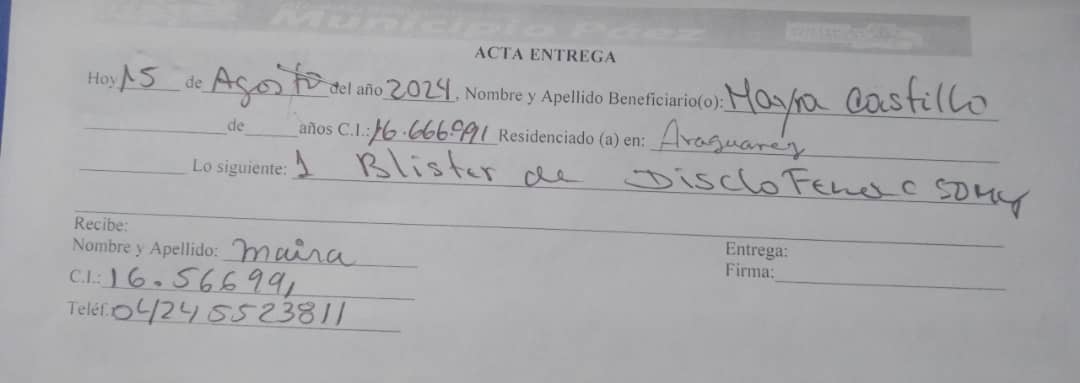 Municipio Páez
ACTA ENTREGA
Hoy 15 de Agosto del año 2024, Nombre y Apellido Beneficiario(o): Mayra Castillo
de años C.I.: 16.666.991 Residenciado (a) en: Araguarey
Lo siguiente: 1 Blister de Disclofenac 50mg
Recibe:
Nombre y Apellido: maira
C.I.: 16.566991
Teléf: 04245523811
Entrega:
Firma: